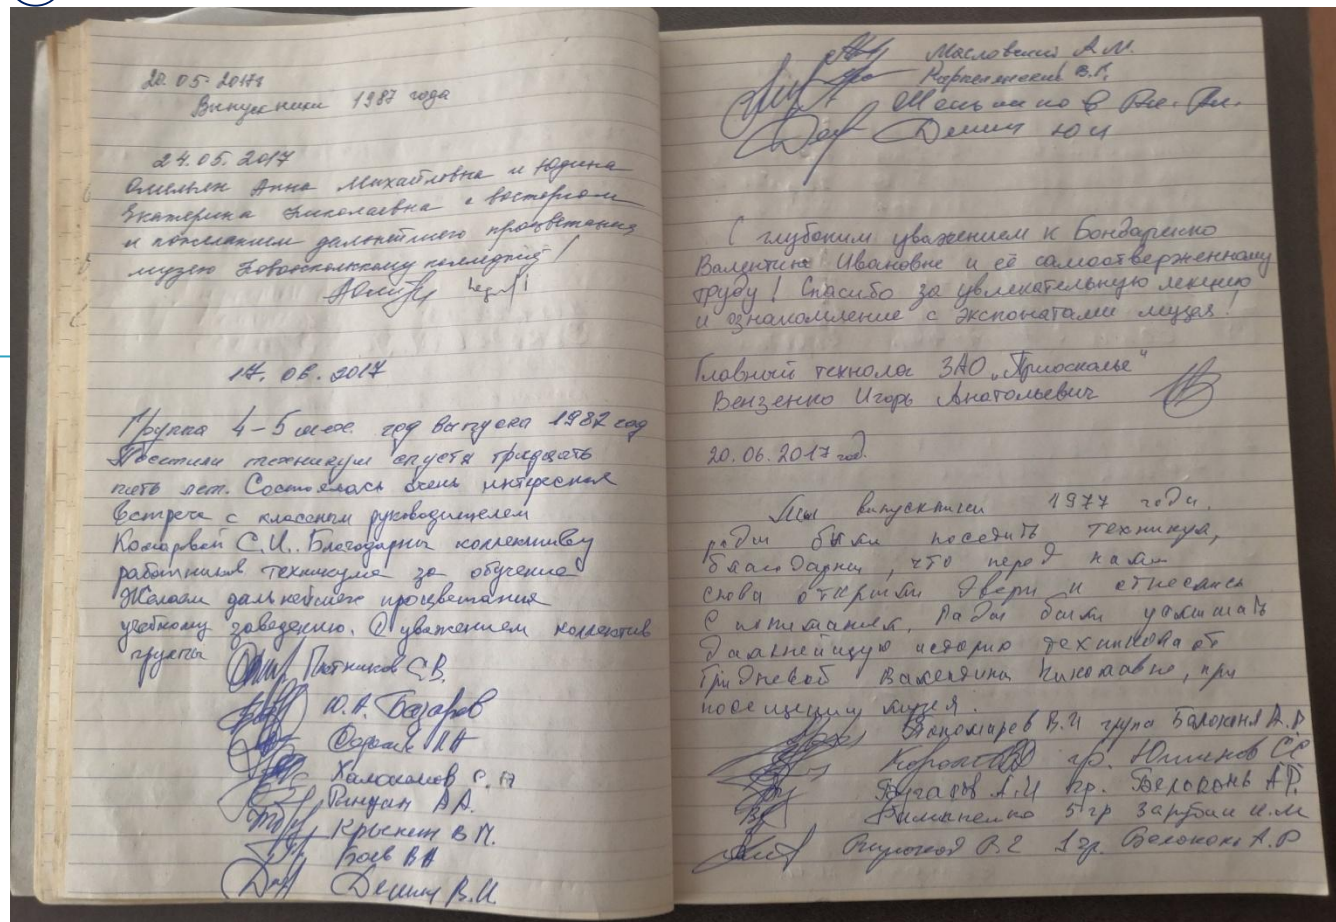 20.05.2017г
Выпускники 1987 года
24.05.2017
Омельян Анна Михайловна и Юдина
Екатерина Николаевна с восторгом
и пожеланием дальнейшего процветания
музею Новооскольскому колледжу!
17.06.2017
Группа 4-5 мех. год выпуска 1982 год
Посетили техникум спустя тридцать
пять лет. Состоялась очень интересная
встреча с классным руководителем
Комаровой С.И.. Благодарны коллективу
работников техникума за обучение
Желаем дальнейшего процветания
учебному заведению. С уважением коллектив
группы
Плотников С.В.
Ю.А. Базаров
Халаимов С.А
Рындин А.А.
Крыскин В.М.
Боев В.А
Демин В.И.
Масловский А.М.
Мельников Вл. Вл.
Демин Ю И
С глубоким уважением к Бондаренко
Валентине Ивановне и её самоотверженному
труду! Спасибо за увлекательную лекцию
и ознакомление с экспонатами музея!
Главный технолог ЗАО „Приосколье"
Вензенко Игорь Анатольевич
20.06.2017 год.
Мы выпускники 1977 года.
рады были посетить техникум,
благодарны, что перед нами
снова открыли двери и отнеслись
с пониманием, Рады были услышать
дальнейшую историю техникума от
Гридневой Валентины Николавне, при
посещении музея.
Пономарев В.И група Балоконя А.Р
гр. Юшинов С.С
Бугаев А.И гр. Белоконь А.Р.
5 гр Зарубин И.М
1 гр. Белоконь А.Р